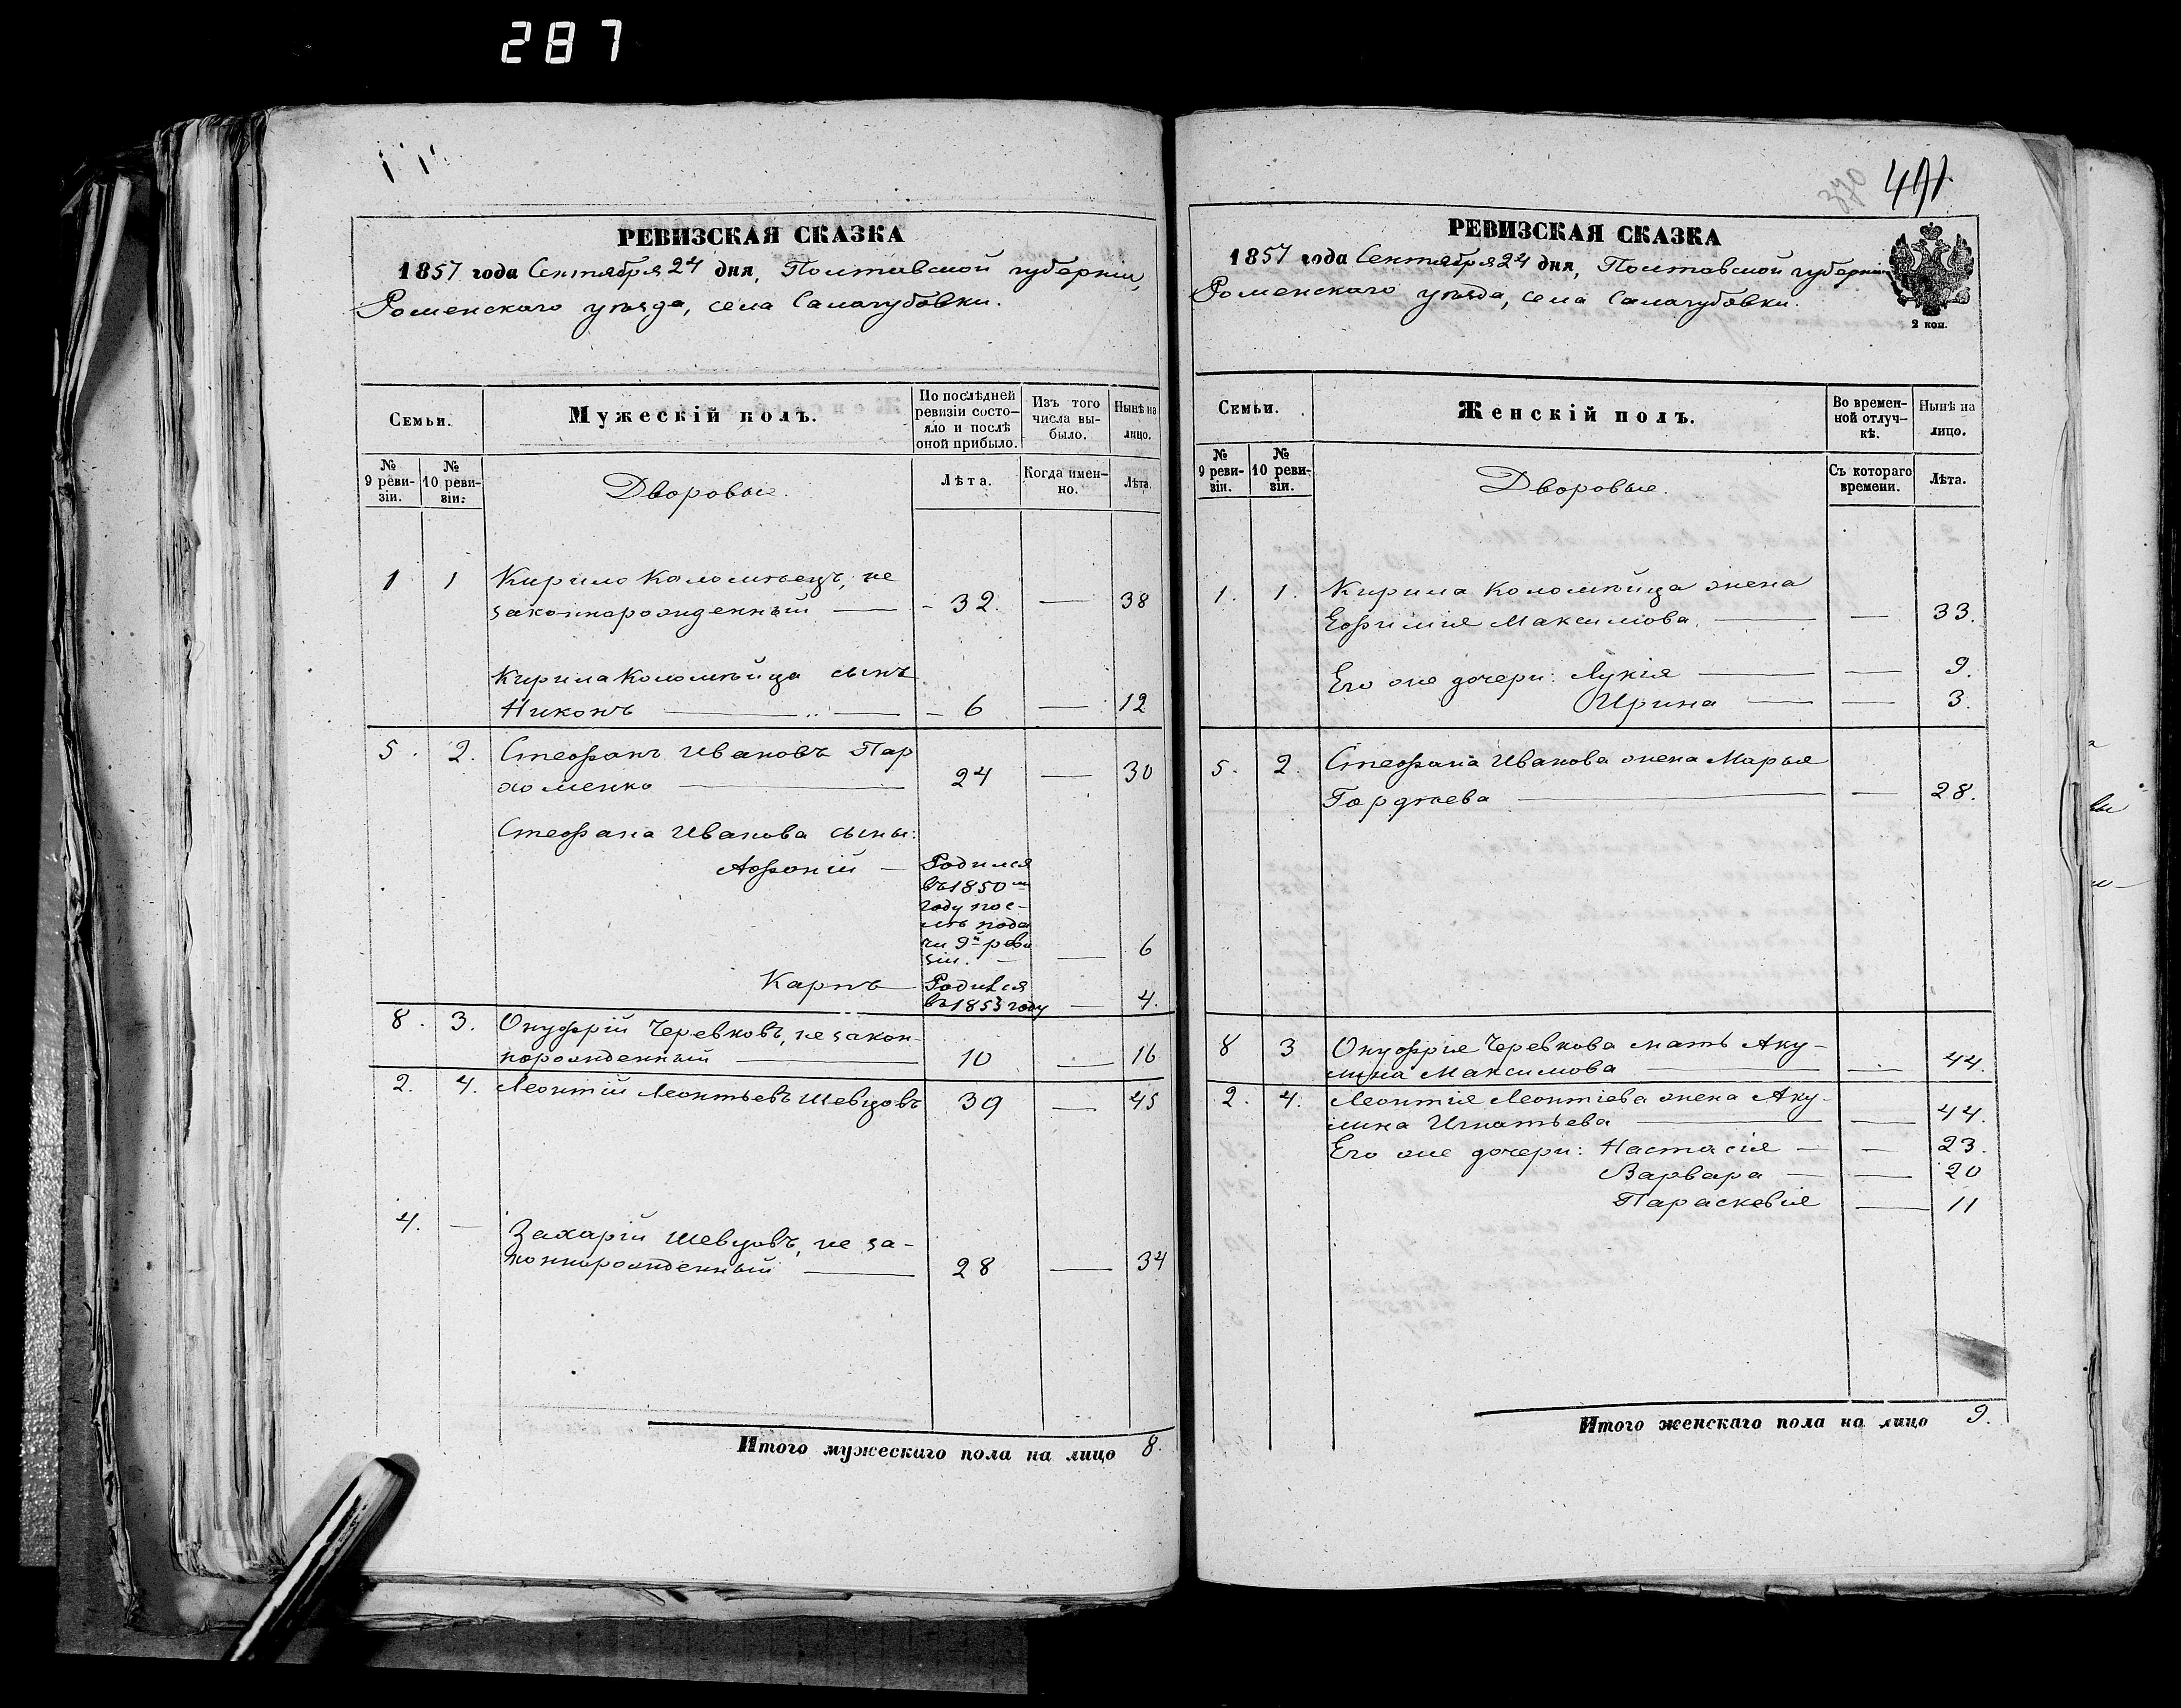 287
РЕВИЗСКАЯ СКАЗКА
1857 года Сентября 24 дня, Полтавской губерніи,
Роменскаго уѣзда, села Салогубовки.
Семьи.
Мужескій полъ.
По послѣдней
ревизіи состо-
яло и послѣ
оной прибыло.
Изъ того
числа вы-
было.
Нынѣ на
лицо.
№
9 реви-
зіи.
№
10 реви-
зіи.
Дворовые.
Лѣта.
Когда имен-
но.
Лѣта.
1 1 Кирило Коломѣецъ, не
законнорожденный — 32. — 38
Кирила Коломѣйца сынъ
Никонъ — 6 — 12
5. 2. Стефанъ Ивановъ Пар
хоменко — 24 — 30
Стефана Иванова сыны:
Афоній — Родился
въ 1850 м
году пос-
лѣ пода
чи 9й реви
зіи. — 6
Карпъ — Родился
въ 1853 году — 4.
8. 3. Онуфрій Черевковъ, не закон-
норожденный — 10 — 16
2. 4. Леонтій Леонтьевъ Шевцовъ 39 — 45
4. — Захарій Шевцовъ, не за-
коннорожденный — 28 — 34
Итого мужескаго пола на лицо 8.
370
РЕВИЗСКАЯ СКАЗКА
1857 года Сентября 24 дня, Полтавской губерніи
Роменскаго уѣзда, села Салогубовки.
2 коп.
Семьи.
Женскій полъ.
Во времен-
ной отлуч-
кѣ.
Нынѣ на
лицо.
№
9 реви-
зіи.
№
10 реви-
зіи.
Дворовые.
Съ котораго
времени.
Лѣта.
1. 1. Кирила Коломѣйца жена
Ефимия Максимова. — — 33.
Его же дочери: Лукія — — 9.
Ирина — — 3.
5. 2. Стефана Иванова жена Марья
Гордѣева — — 28.
8 3 Онуфрія Черевкова мать Аку-
лина Максимова — — 44.
2. 4. Леонтія Леонтіева жена Аку-
лина Игнатьева — — 44.
Его же дочери: Настасія — — 23.
Варвара — — 20
Параскевія — 11
Итого женскаго пола на лицо 9.